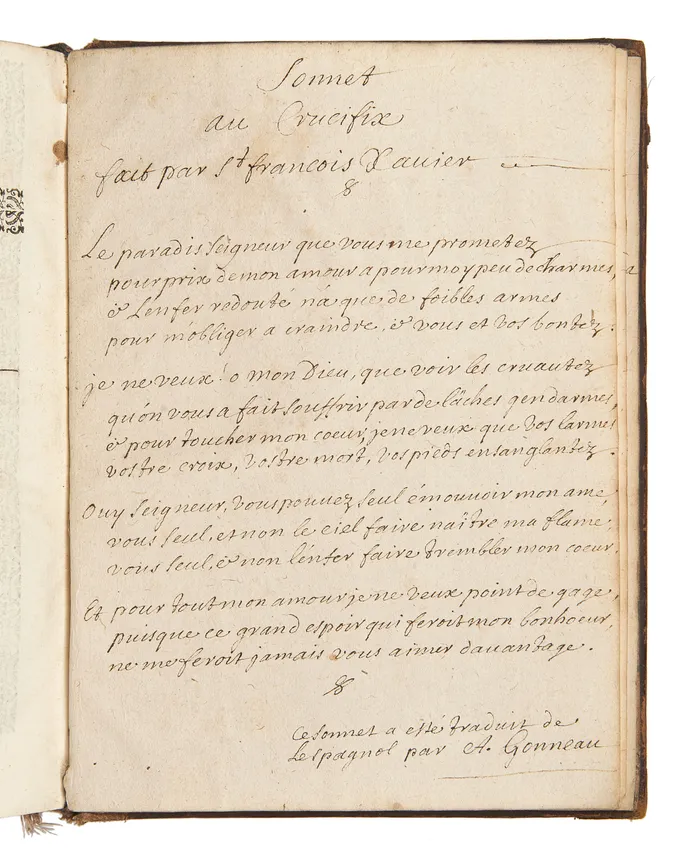 Sonnet
au Crucifix
fait par St francois Xauier
Le paradis seigneur que vous me prometez
pour prix de mon amour a pour moy peu de charmes,
& Lenfer redouté n'a que de foibles armes
pour m'obliger a craindre, & vous et vos bontez.
je ne veux o mon Dieu, que voir les cruautez
qu'on vous a fait souffrir par de lâches gendarmes,
& pour toucher mon coeur, je ne veux que vos larmes
vostre croix, vostre mort, vos pieds ensanglantez.
Ouy seigneur, vous pouuez seul émouuoir mon ame,
vous seul, et non le ciel faire naître ma flame
vous seul, & non l'enfer faire trembler mon coeur.
Et pour tout mon amour je ne veux point de gage,
puisque ce grand espoir qui feroit mon bonhoeur,
ne me feroit jamais vous aimer dauantage.
Ce sonnet a esté traduit de
Lespagnol par A. Gonneau